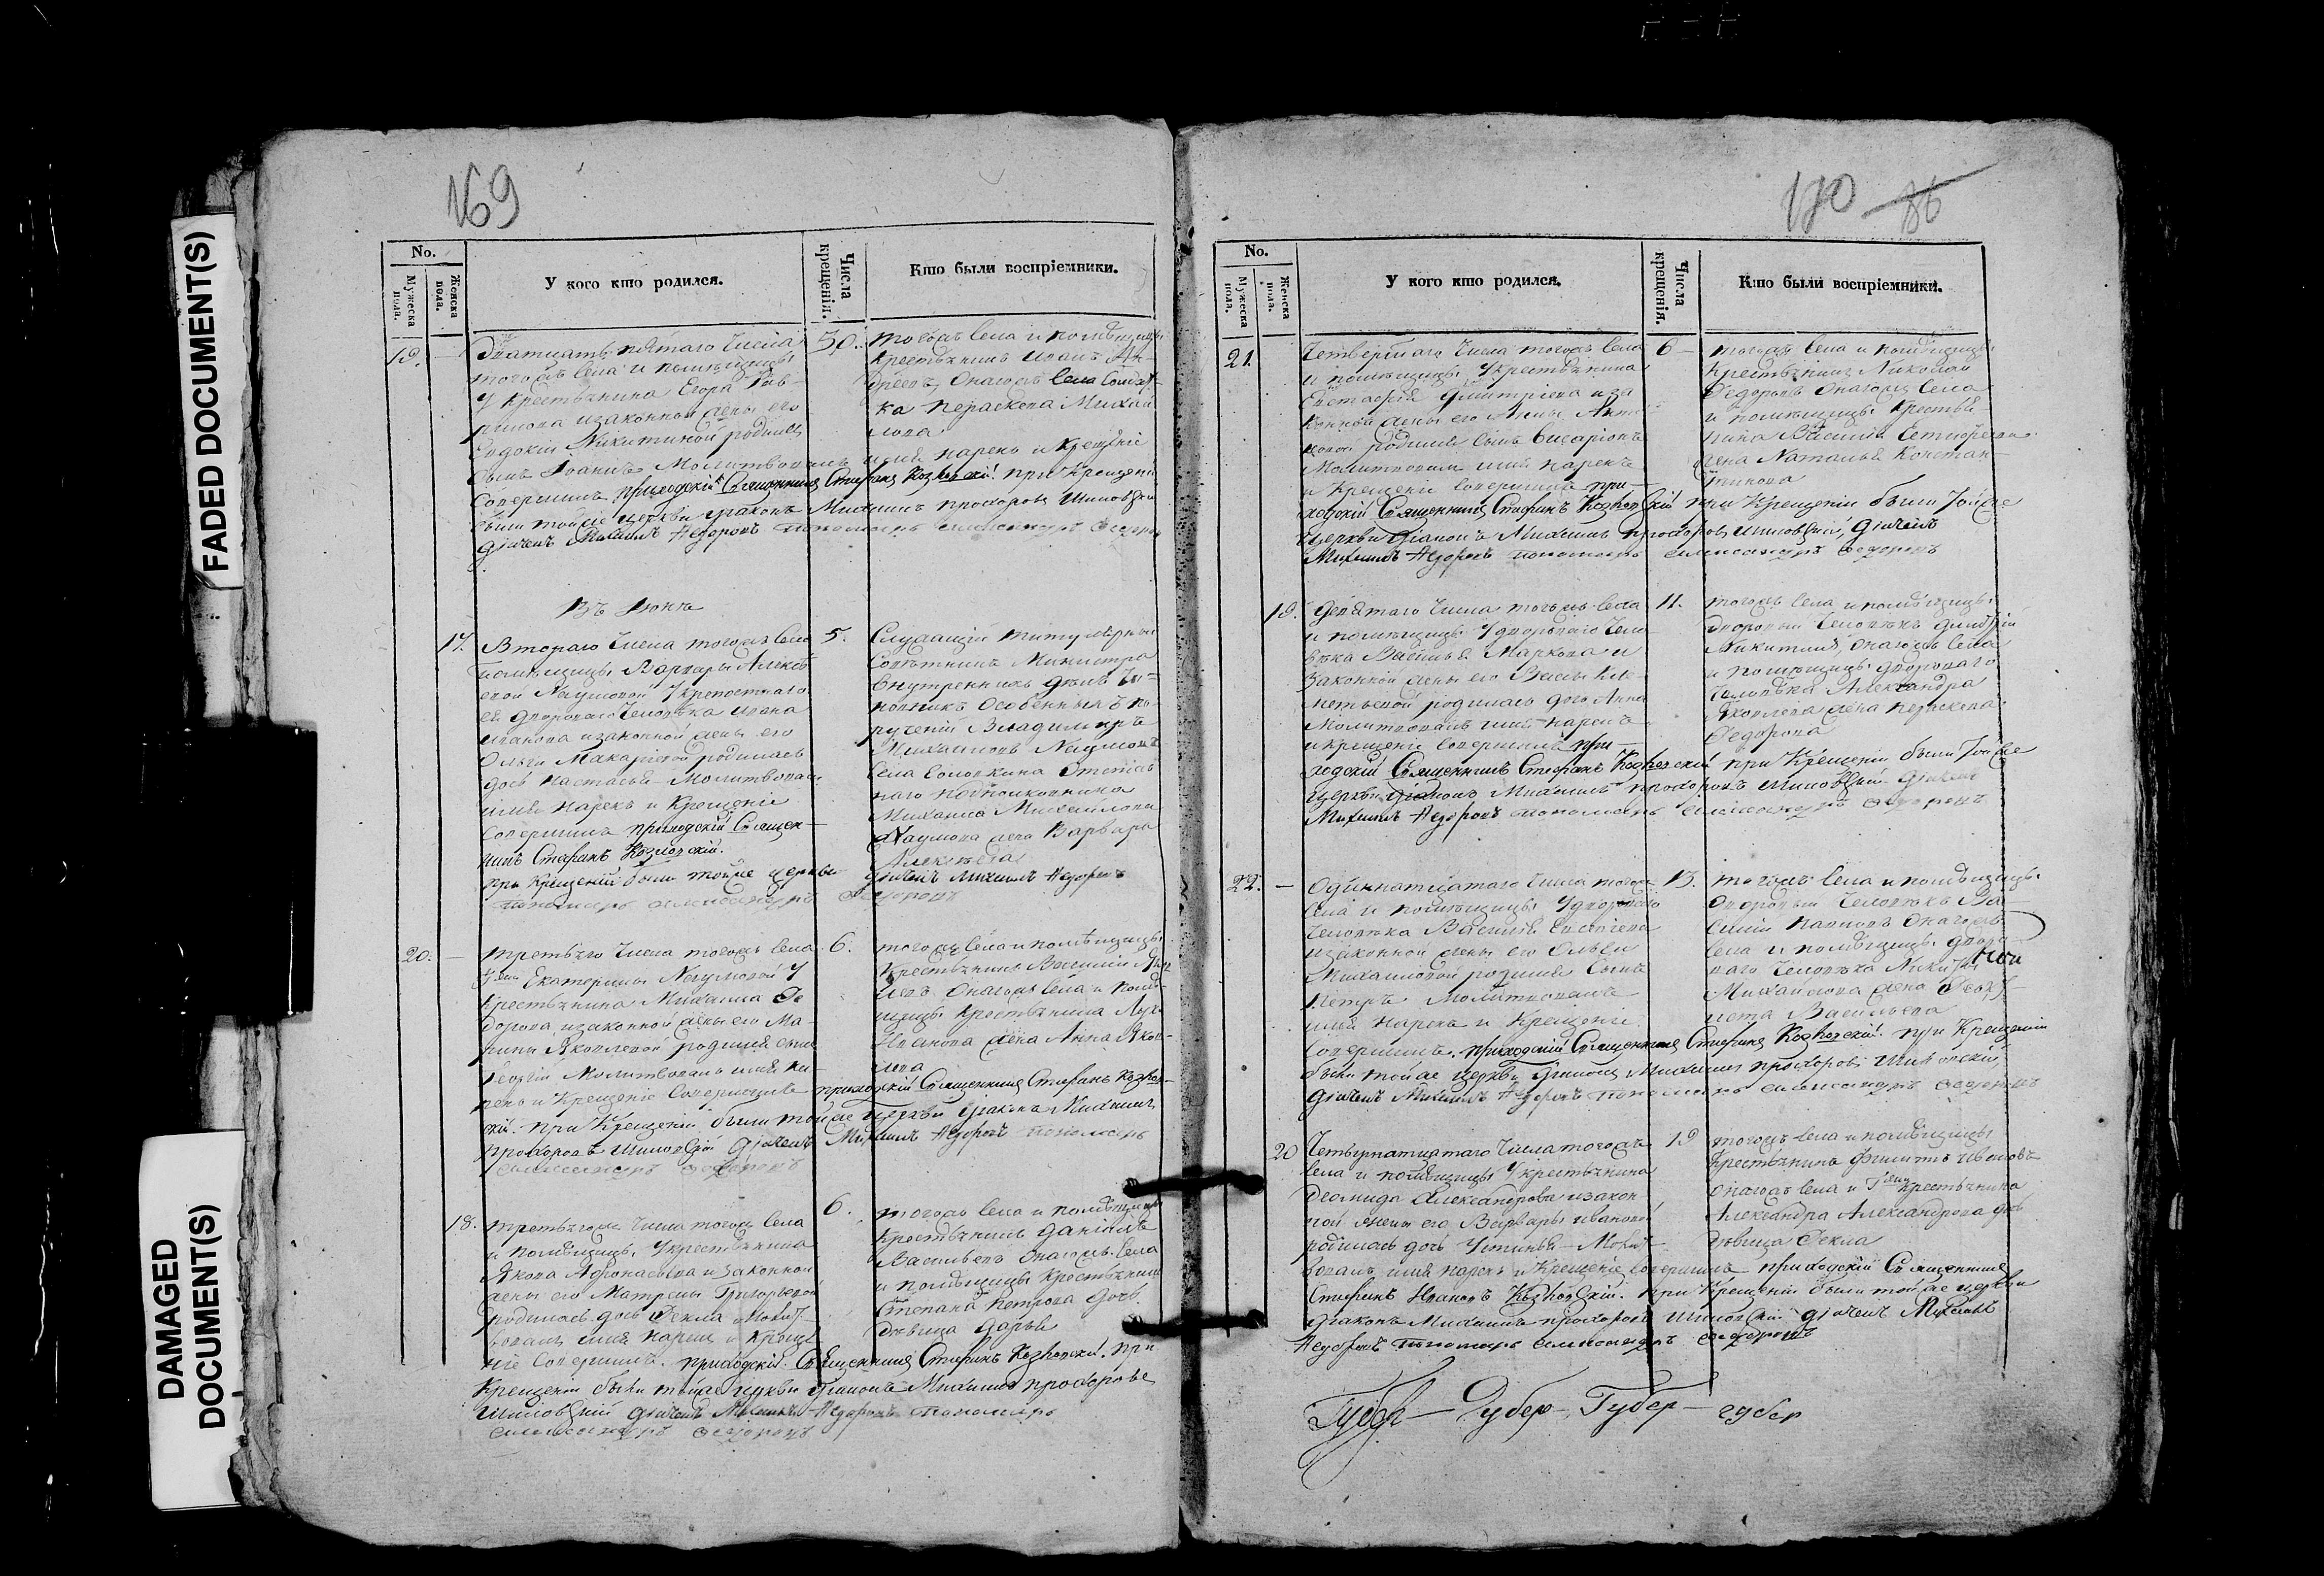 FADED DOCUMENT(S)
DAMAGED
DOCUMENT(S)
169
No.
Мужеска пола.
Женска пола.
У кого кто родился.
Числа крещенія.
Кто были воспріемники.
19. —
Дватцать пятаго числа
тогожъ села и помѣщицы
у крестьянина Егора Гав-
рилова и законной жены его
Евдокіи Никитиной родился
сынъ Іоаннъ Молитвовалъ имя нарекъ и крещеніе
совершилъ приходскій Священникъ Стефанъ Козловскій. при крещеніи
были тойже церкви діаконъ Михаилъ Прохоровъ Шиловскій
дьячекъ Михаилъ Федоровъ пономарь Александръ Федоровъ
30.
тогожъ села и помѣщицы
крестьянинъ Иванъ Ан-
дреевъ, онагожъ села солдат-
ка Пераскева Михай-
лова
Въ Іюнѣ
17.
Втораго числа тогожъ села
помѣщицы Варвары Алексѣ-
евой Наумовой у крепостнаго
ея двороваго человѣка Ивана
Иванова и законной жены его
Ольги Макаровой родилась
дочь Настасья Молитвовалъ
имя нарекъ и крещеніе
совершилъ приходскій Священ-
никъ Стефанъ Козловскій.
при крещеніи были тойже церкви дьячекъ Михаилъ Федоровъ
пономарь Александръ Федоровъ
5.
Служащій титулярный
Совѣтникъ Министра
внутреннихъ дѣлъ чи-
новникъ особенныхъ по-
рученій Владимиръ
Михаиловъ Наумовъ
села Соловкина отстав-
наго подполковника
Михаила Михайлова
Наумова жена Варвара
Алексѣева
20. —
третьяго числа тогожъ села
Екатерины Наумовой у
крестьянина Михаила Фе-
дорова, и законной жены его Ма-
рины Яковлевой родился сынъ
Георгій Молитвовалъ имя на-
рекъ и крещеніе совершилъ приходскій Священникъ Стефанъ Козлов-
скій. при крещеніи были тойже церкви діаконъ Михаилъ
Прохоровъ Шиловскій дьячекъ Михаилъ Федоровъ пономарь
Александръ Федоровъ
6.
тогожъ села и помѣщицы
крестьянинъ Василій
онагожъ села и помѣ-
щицы крестьянина
Иванова жена Анна Яков-
лева
18.
третьягожъ числа тогожъ села
и помѣщицы у крестьянина
Якова Афонасьева и законной
жены его Матрены Григорьевой
родилась дочь Фекла Молит-
вовалъ имя нарекъ и креще-
ніе совершилъ. приходскій Священникъ Стефанъ Козловскій. при
крещеніи были тойже церкви діаконъ Михаилъ Прохоровъ
Шиловскій дьячекъ Михаилъ Федоровъ пономарь
Александръ Федоровъ
6.
тогожъ села и помѣщицы
крестьянинъ Даніилъ
Васильевъ онагожъ села
и помѣщицы крестьянина
Степана Петрова дочь
дѣвица Дарья
170 86
No.
Мужеска пола.
Женска пола.
У кого кто родился.
Числа крещенія.
Кто были воспріемники.
21.
Четвертаго числа тогожъ села
и помѣщицы у крестьянина
Евстафія Дмитріева и за-
конной жены его Анны
родился сынъ Висаріонъ
Молитвовалъ имя нарекъ
и крещеніе совершилъ при-
ходскій Священникъ Стефанъ Козловскій при крещеніи были тойже
церкви діаконъ Михаилъ Прохоровъ Шиловскій, дьячекъ
Михаилъ Федоровъ пономарь Александръ Федоровъ
6 —
тогожъ села и помѣщицы
крестьянинъ Николай
Федоровъ онагожъ села
и помѣщицы крестья-
нина Василія
жена Наталья Констан-
тинова
19.
Девятаго числа тогожъ села
и помѣщицы у двороваго чело-
вѣка Василья Маркова и
законной жены его Васы Кле-
ментьевой родилась дочь Анна
Молитвовалъ имя нарекъ
и крещеніе совершилъ при-
ходскій Священникъ Стефанъ Козловскій при крещеніи были тойже
церкви діаконъ Михаилъ Прохоровъ Шиловскій дьячекъ
Михаилъ Федоровъ пономарь Александръ Федоровъ
11.
тогожъ села и помѣщицы
дворовый человѣкъ Дмитрій
Никитинъ, онагожъ села
и помѣщицы двороваго
человѣка Александра
Яковлева жена Пераскева
Федорова
22. —
Одиннатцатаго числа тогожъ
села и помѣщицы у двороваго
человѣка Василья
и законной жены его Ольги
Михаиловой родился сынъ
Петръ Молитвовалъ
имя нарекъ и крещеніе
совершилъ. приходскій Священникъ Стефанъ Козловскій. при крещеніи
были тойже церкви діаконъ Михаилъ Прохоровъ Шиловскій,
дьячекъ Михаилъ Федоровъ пономарь Александръ Федоровъ
13.
тогожъ села и помѣщицы
дворовый человѣкъ Ва-
силій онагожъ
села и помѣщицы дворо-
ваго человѣка Никиты
Михайлова жена Феок-
тиста Васильева
20
Четырнатцатаго числа тогожъ
села и помѣщицы у крестьянина
Деомида Александрова и закон-
ной жены его Варвары Ивановой
родилась дочь Устинья — Молит-
вовалъ имя нарекъ и крещеніе совершилъ приходскій Священникъ
Стефанъ Ивановъ Козловскій. при крещеніи были тойже церкви
діаконъ Михаилъ Прохоровъ Шиловскій дьячекъ Михаилъ
Федоровъ пономарь Александръ Федоровъ
19
тогожъ села и помѣщицы
крестьянинъ Филиппъ Ивановъ
онагожъ села и крестьянина
Александра Александрова дочь
дѣвица Фекла
Губер — Губер — Губер — губер